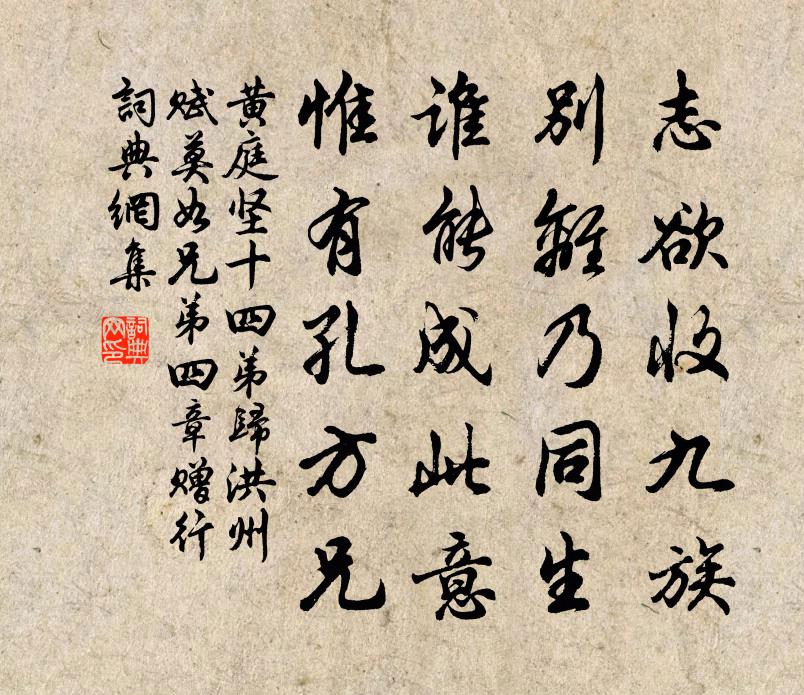 志欲收九族
别離乃同生
誰能成此意
惟有孔方兄
黄庭坚十四弟歸洪州
赋莫如兄弟四章赠行
詞典網集
詞典网印